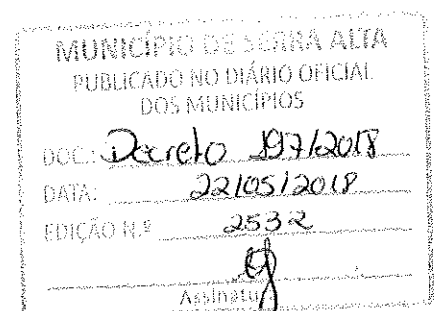 MUNICÍPIO DE SERRA ALTA
PUBLICADO NO DIÁRIO OFICIAL
DOS MUNICÍPIOS
DOC.: Decreto 197/2018
DATA: 22/05/2018
EDIÇÃO N.º 2532
Assinatu